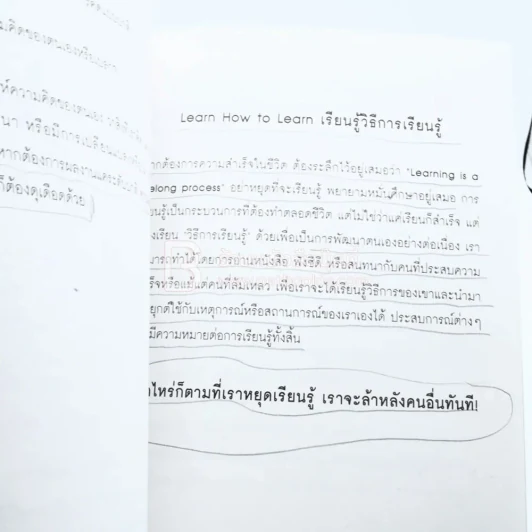 มคิดของตนเองหรือเปล่า
ห์ความคิดของตนเอง
นา หรือมีการเปลี่ยนแปลง
หากต้องการผลงาน
ก็ต้องดุเดือดด้วย
Learn How to Learn เรียนรู้วิธีการเรียนรู้
ากต้องการความสำเร็จในชีวิต ต้องระลึกไว้อยู่เสมอว่า "Learning is a
elong process" อย่าหยุดที่จะเรียนรู้ พยายามหมั่นศึกษาอยู่เสมอ การ
ยนรู้เป็นกระบวนการที่ต้องทำตลอดชีวิต แต่ไม่ใช่ว่าแค่เรียนก็สำเร็จ แต่
งเรียน "วิธีการเรียนรู้" ด้วยเพื่อเป็นการพัฒนาตนเองอย่างต่อเนื่อง เรา
มารถทำได้โดยการอ่านหนังสือ ฟังซีดี หรือสนทนากับคนที่ประสบความ
ร็จหรือแม้แต่คนที่ล้มเหลว เพื่อเราจะได้เรียนรู้วิธีการของเขาและนำมา
ยุกต์ใช้กับเหตุการณ์หรือสถานการณ์ของเราเองได้ ประสบการณ์ต่างๆ
มีความหมายต่อการเรียนรู้ทั้งสิ้น
อไหร่ก็ตามที่เราหยุดเรียนรู้ เราจะล้าหลังคนอื่นทันที!